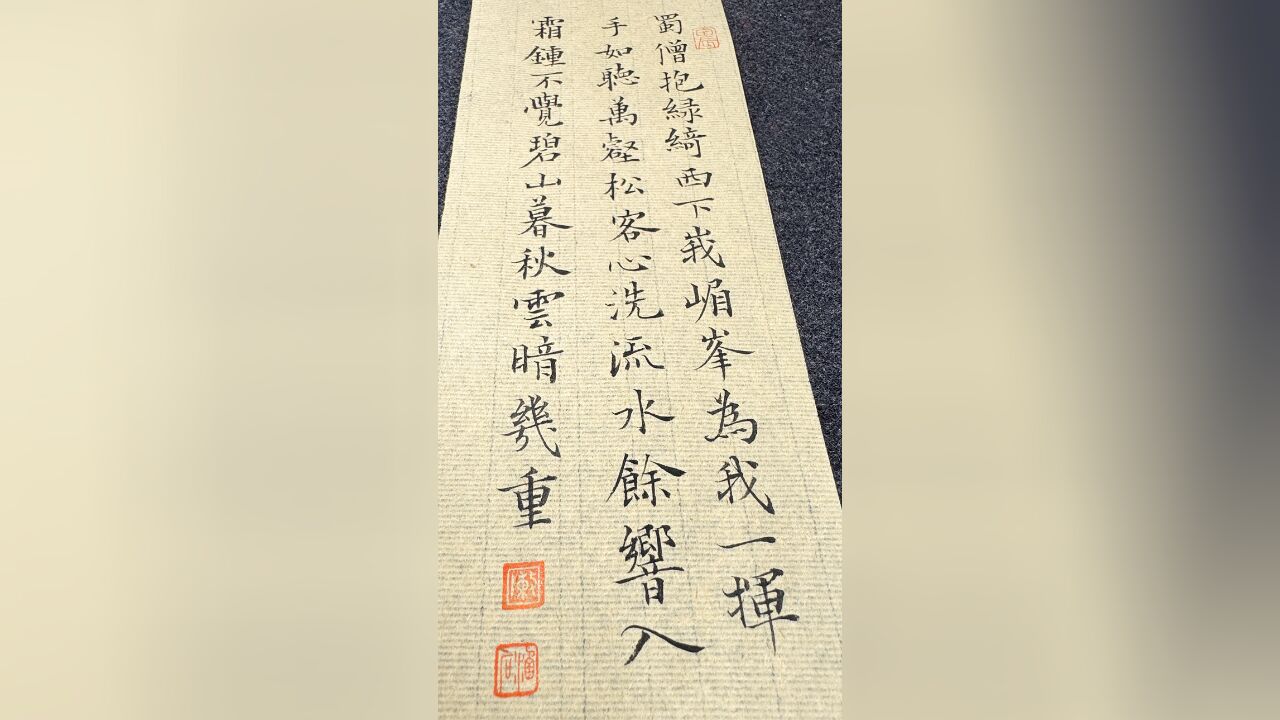 蜀僧抱緑綺西下峩嵋峯為我一揮
手如聽萬壑松客心洗流水餘響入
霜鍾不覺碧山暮秋雲暗幾重